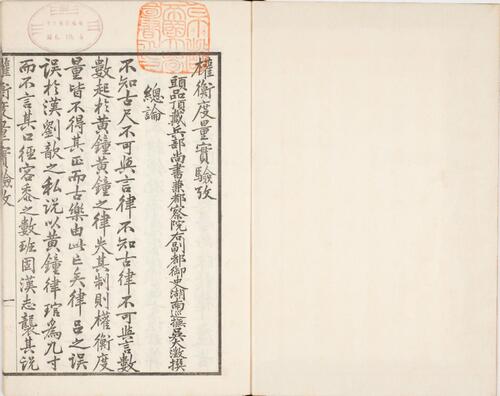 權衡度量實驗攷
頭品頂戴兵部尚書兼都察院右副都御史湖南巡撫吳大澂撰
總論
不知古尺不可與言律不知古律不可與言數
數起於黃鐘黃鐘之律失其制則權衡度
量皆不得其正而古樂由此亡矣律呂之誤
誤於漢劉歆之私說以黃鐘律琯爲九寸
而不言其口徑容黍之數班固漢志襲其說
權衡度量實驗攷
一